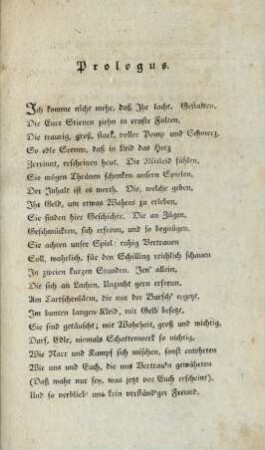 Prologus.
Ich komme nicht mehr, daß Ihr lacht. Gestalten,
Die Eure Stirnen ziehn in ernste Falten,
Die traurig, groß, stark, voller Pomp und Schmerz,
So edle Scenen, daß in Leid das Herz
Zerrinnt, erscheinen heut. Die Mitleid fühlen,
Sie mögen Thränen schenken unsern Spielen,
Der Inhalt ist es werth. Die, welche geben,
Ihr Geld, um etwas Wahres zu erleben,
Sie finden hier Geschichte. Die an Zügen,
Geschmückten, sich erfreun, und so begnügen,
Sie achten unser Spiel: ruhig Vertrauen
Soll, wahrlich, für den Schilling reichlich schauen
In zweien kurzen Stunden. Jen' allein,
Die sich an Lachen, Unzucht gern erfreun,
Am Tartschenlärm, die nur der Bursch' ergetzt,
Im bunten langen Kleid, mit Gelb besetzt,
Sie sind getäuscht; mit Wahrheit, groß und wichtig,
Darf, Edle, niemals Schattenwerk so nichtig,
Wie Narr und Kampf sich mischen, sonst entehrten
Wir uns und Euch, die uns Vertrau'n gewährten
(Daß wahr nur sey, was jetzt vor Euch erscheint),
Und so verblieb' uns kein verständ'ger Freund.